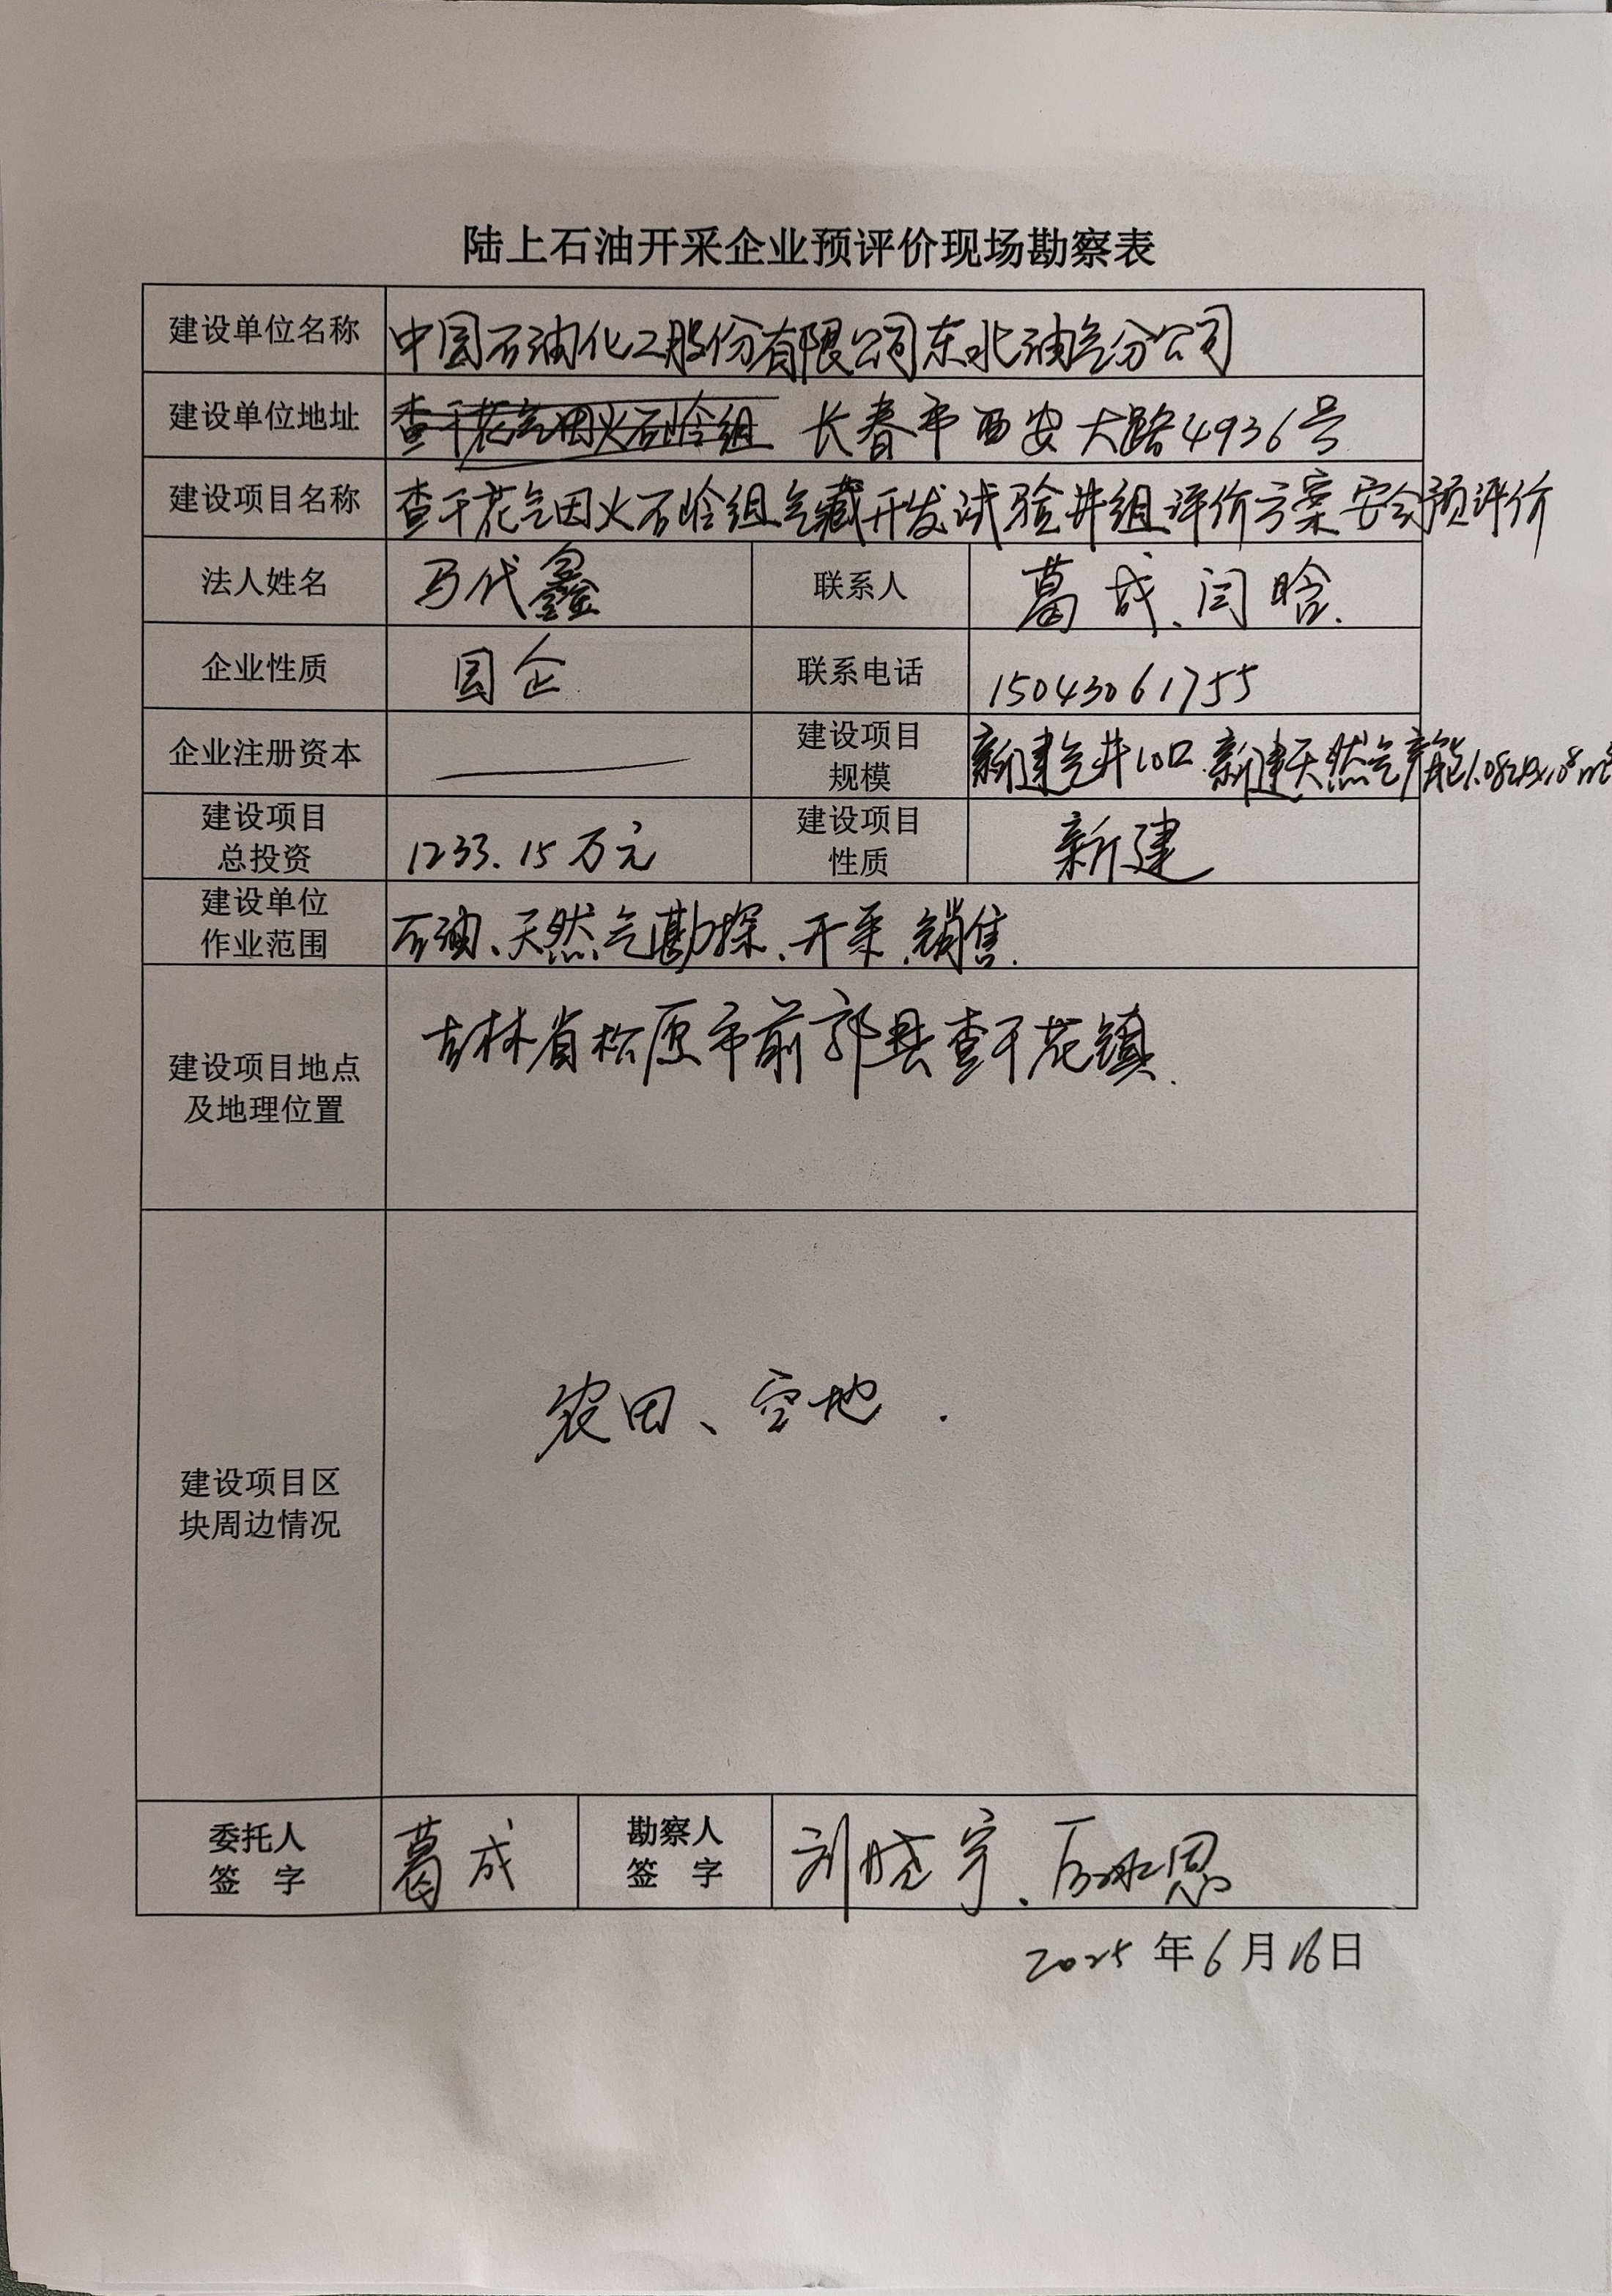 陆上石油开采企业预评价现场勘察表
建设单位名称 中国石油化工股份有限公司东北油气分公司
建设单位地址 查干花气田火石岭组 长春市西安大路4936号
建设项目名称 查干花气田火石岭组气藏开发试验井组评价方案安全预评价
法人姓名 马代鑫 联系人 葛成、闫晗.
企业性质 国企 联系电话 15043061755
企业注册资本 —— 建设项目
规模 新建气井10口 新建天然气产能
建设项目
总投资 1233.15万元 建设项目
性质 新建
建设单位
作业范围 石油、天然气勘探、开采、销售.
建设项目地点
及地理位置 吉林省松原市前郭县查干花镇.
建设项目区
块周边情况 农田、空地.
委托人
签 字 葛成 勘察人
签 字 刘晓宇、
2025年6月16日